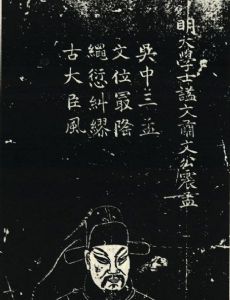 明大學士諡文肅文公震孟
吳中三孟
文位最隆
繩愆糾繆
古大臣風